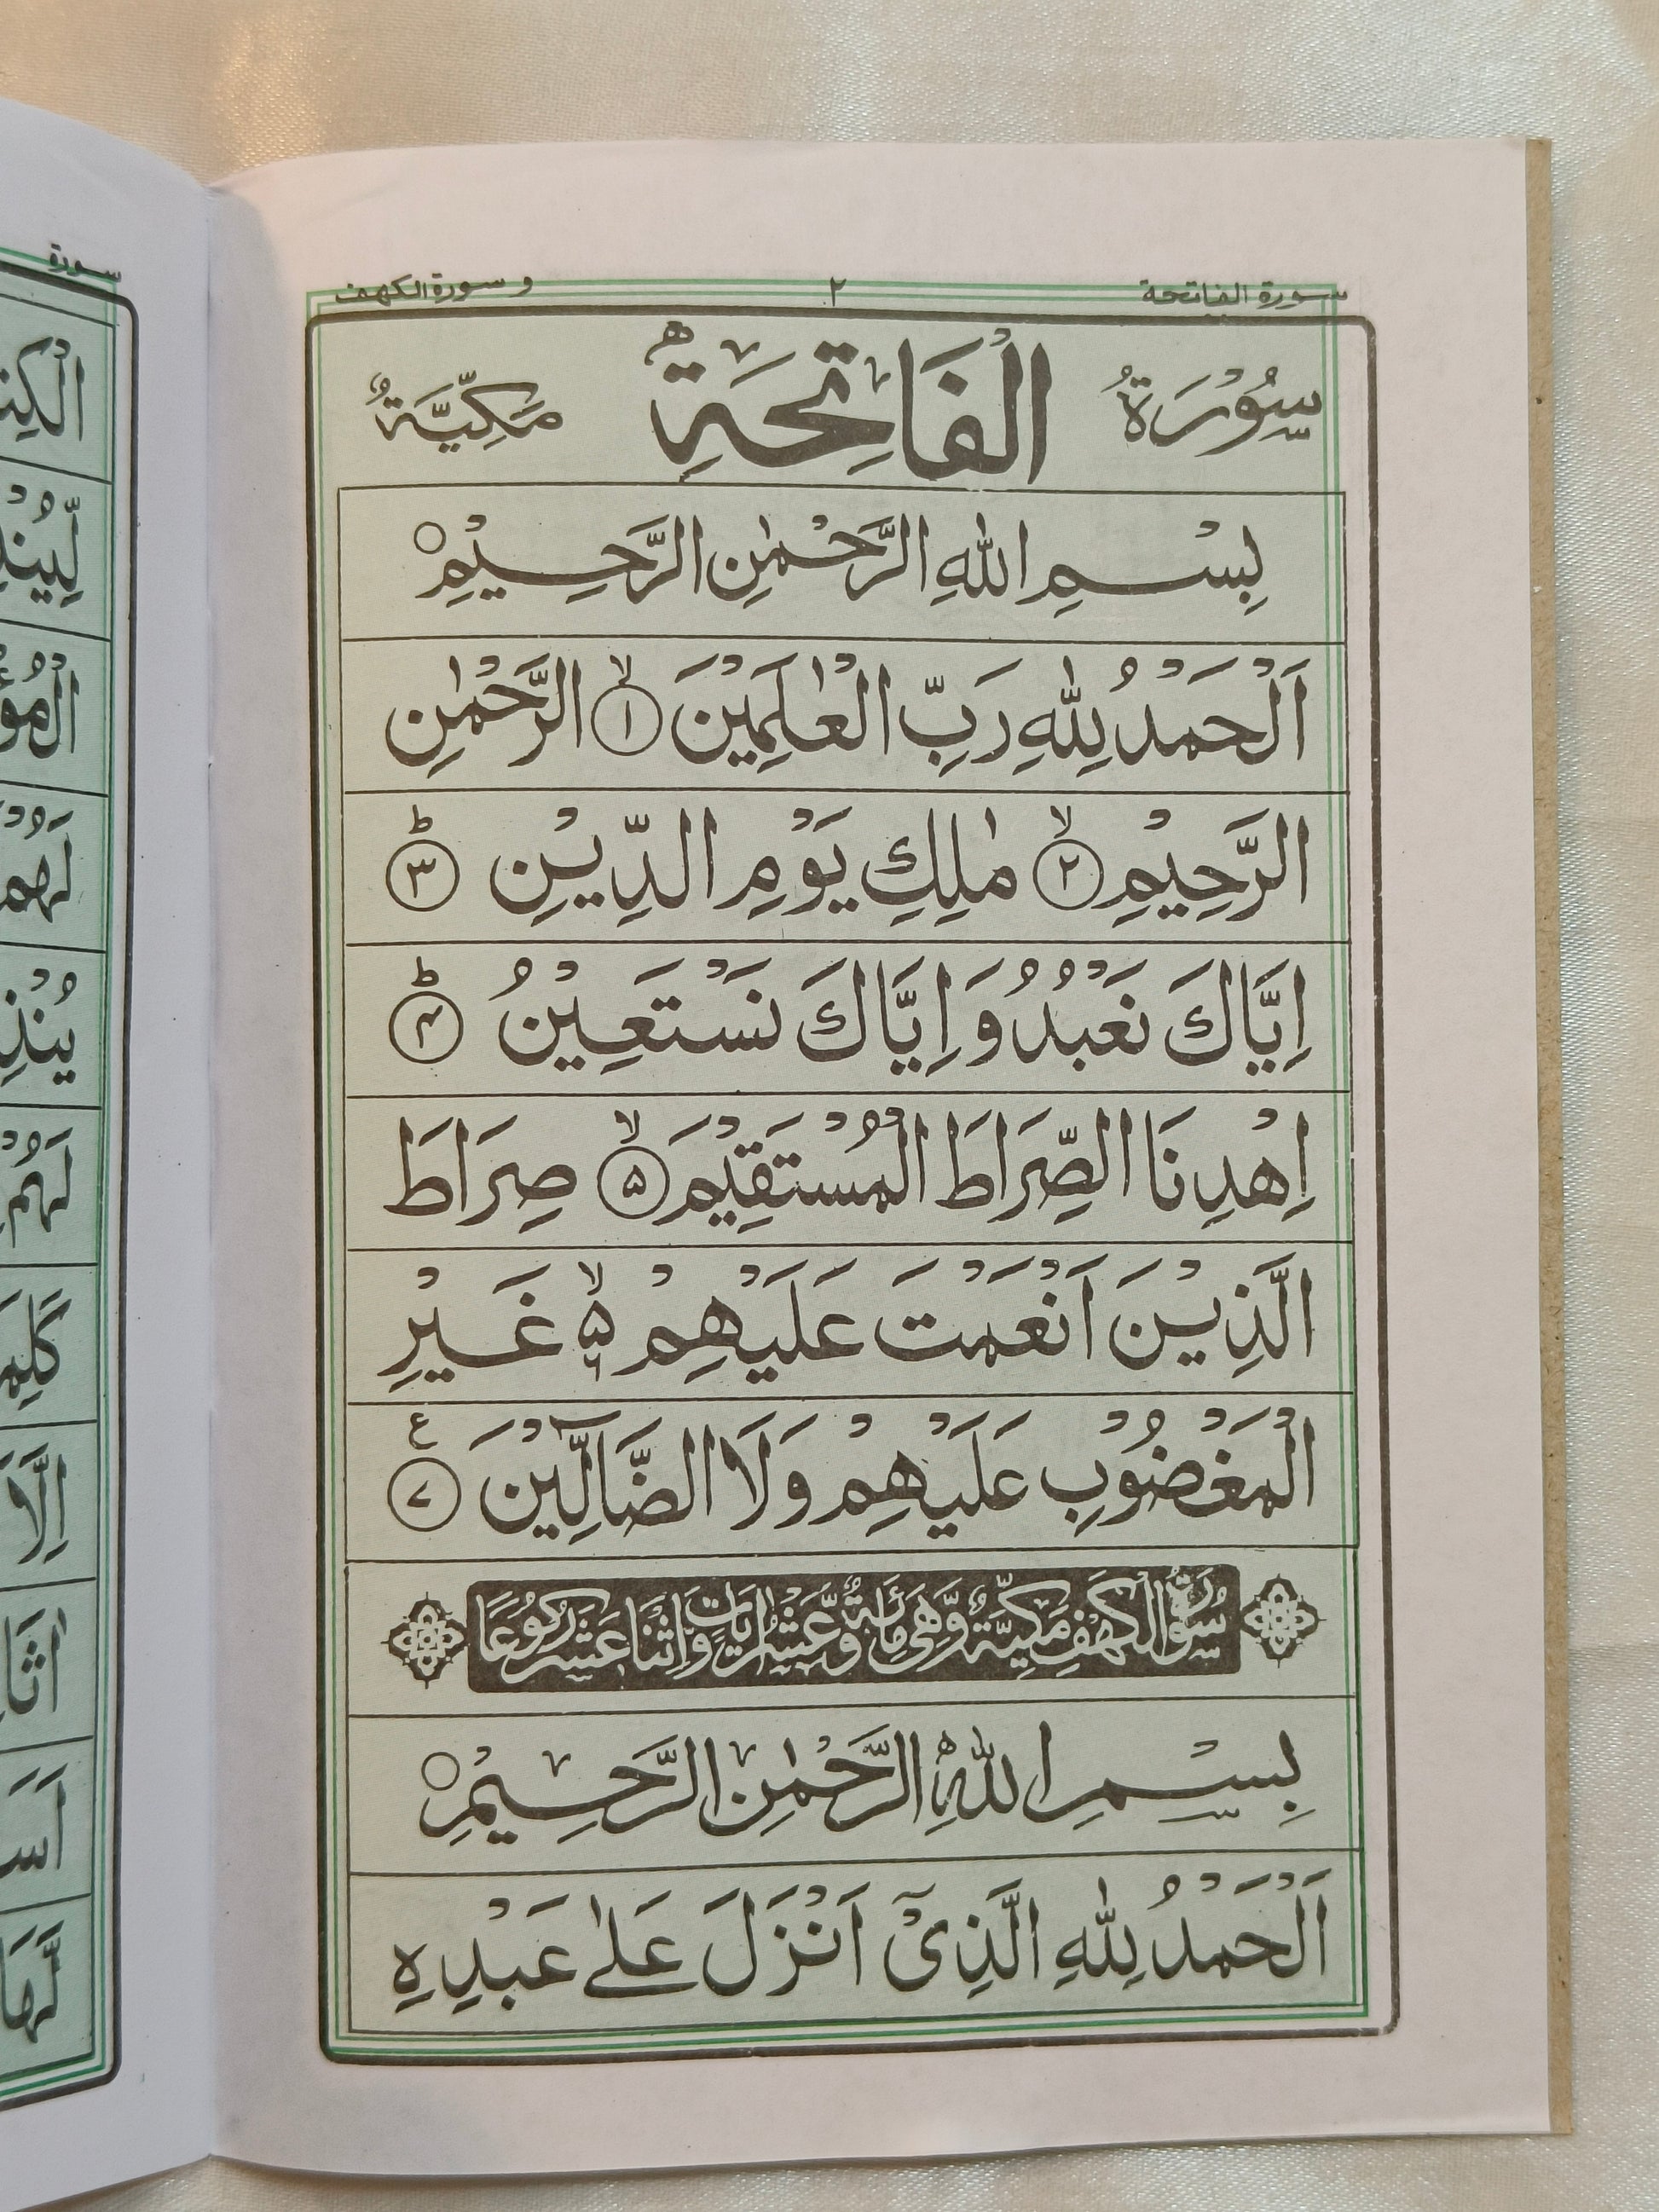 سورة الفاتحة ٢ و سورة الكهف
سُوْرَةُ الْفَاتِحَةِ مَكِّيَّةٌ
بِسْمِ اللّٰهِ الرَّحْمٰنِ الرَّحِيْمِ ○
اَلْحَمْدُ لِلّٰهِ رَبِّ الْعٰلَمِيْنَ ۙ ١ الرَّحْمٰنِ
الرَّحِيْمِ ۙ ٢ مٰلِكِ يَوْمِ الدِّيْنِ ؕ ٣
اِيَّاكَ نَعْبُدُ وَاِيَّاكَ نَسْتَعِيْنُ ؕ ۴
اِهْدِنَا الصِّرَاطَ الْمُسْتَقِيْمَ ۙ ۵ صِرَاطَ
الَّذِيْنَ اَنْعَمْتَ عَلَيْهِمْ ۙ ۵ غَيْرِ
الْمَغْضُوْبِ عَلَيْهِمْ وَلَا الضَّآلِّيْنَ ع ٧
سُوْرَةُ الْكَهْفِ مَكِّيَّةٌ وَّهِيَ مِائَةٌ وَّعَشْرُ اٰيَاتٍ وَّاِثْنَا عَشَرَ رُكُوْعًا
بِسْمِ اللّٰهِ الرَّحْمٰنِ الرَّحِيْمِ ○
اَلْحَمْدُ لِلّٰهِ الَّذِىْٓ اَنْزَلَ عَلٰى عَبْدِهِ
سورة
لَهُمْ
اِلَّا